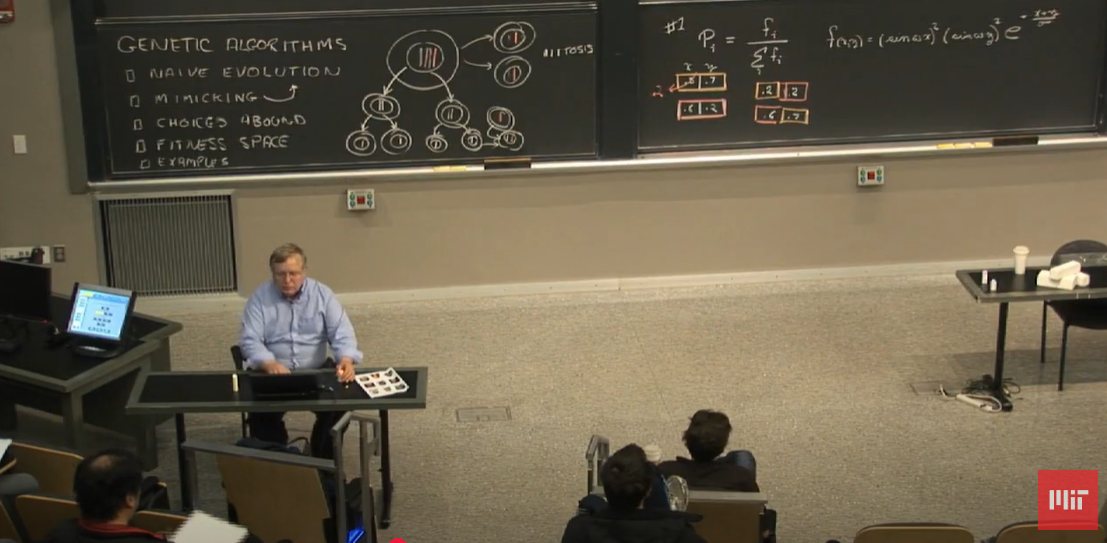 GENETIC ALGORITHMS
NAIVE EVOLUTION
MIMICKING
CHOICES ABOUND
FITNESS SPACE
EXAMPLES
MITOSIS
#1
P_i = f_i / Σ_i f_i
x y
2
.7
.2 .2
.6 .2
.6 .7
MIT